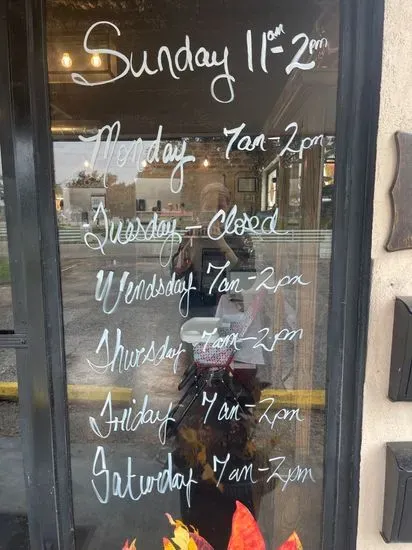 Sunday 11am-2pm
Monday 7am-2pm
Tuesday-Closed
Wendsday 7am-2pm
Thursday 7am-2pm
Friday 7am-2pm
Saturday 7am-2pm